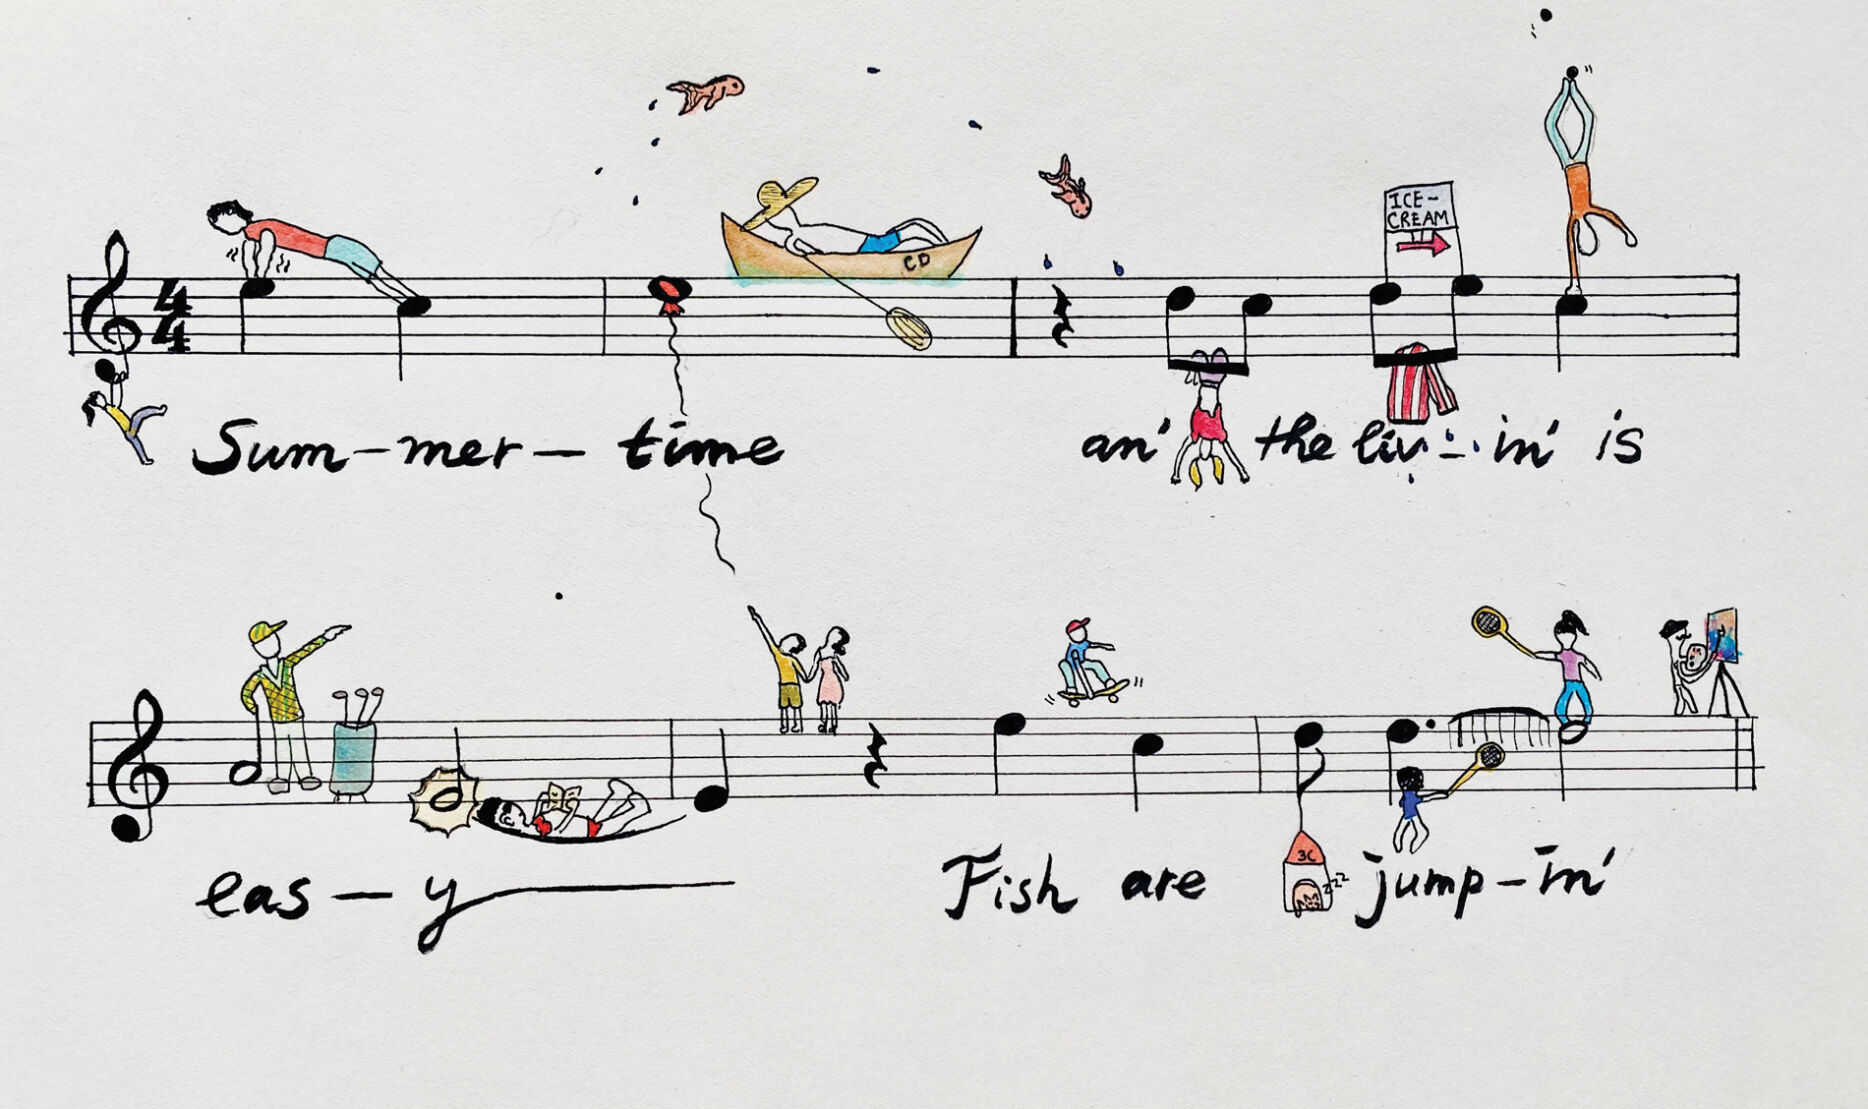 ICE-
CREAM
4
4
CD
Sum-mer-time an' the liv-in' is
eas-y Fish are jump-in'
3C
zzz